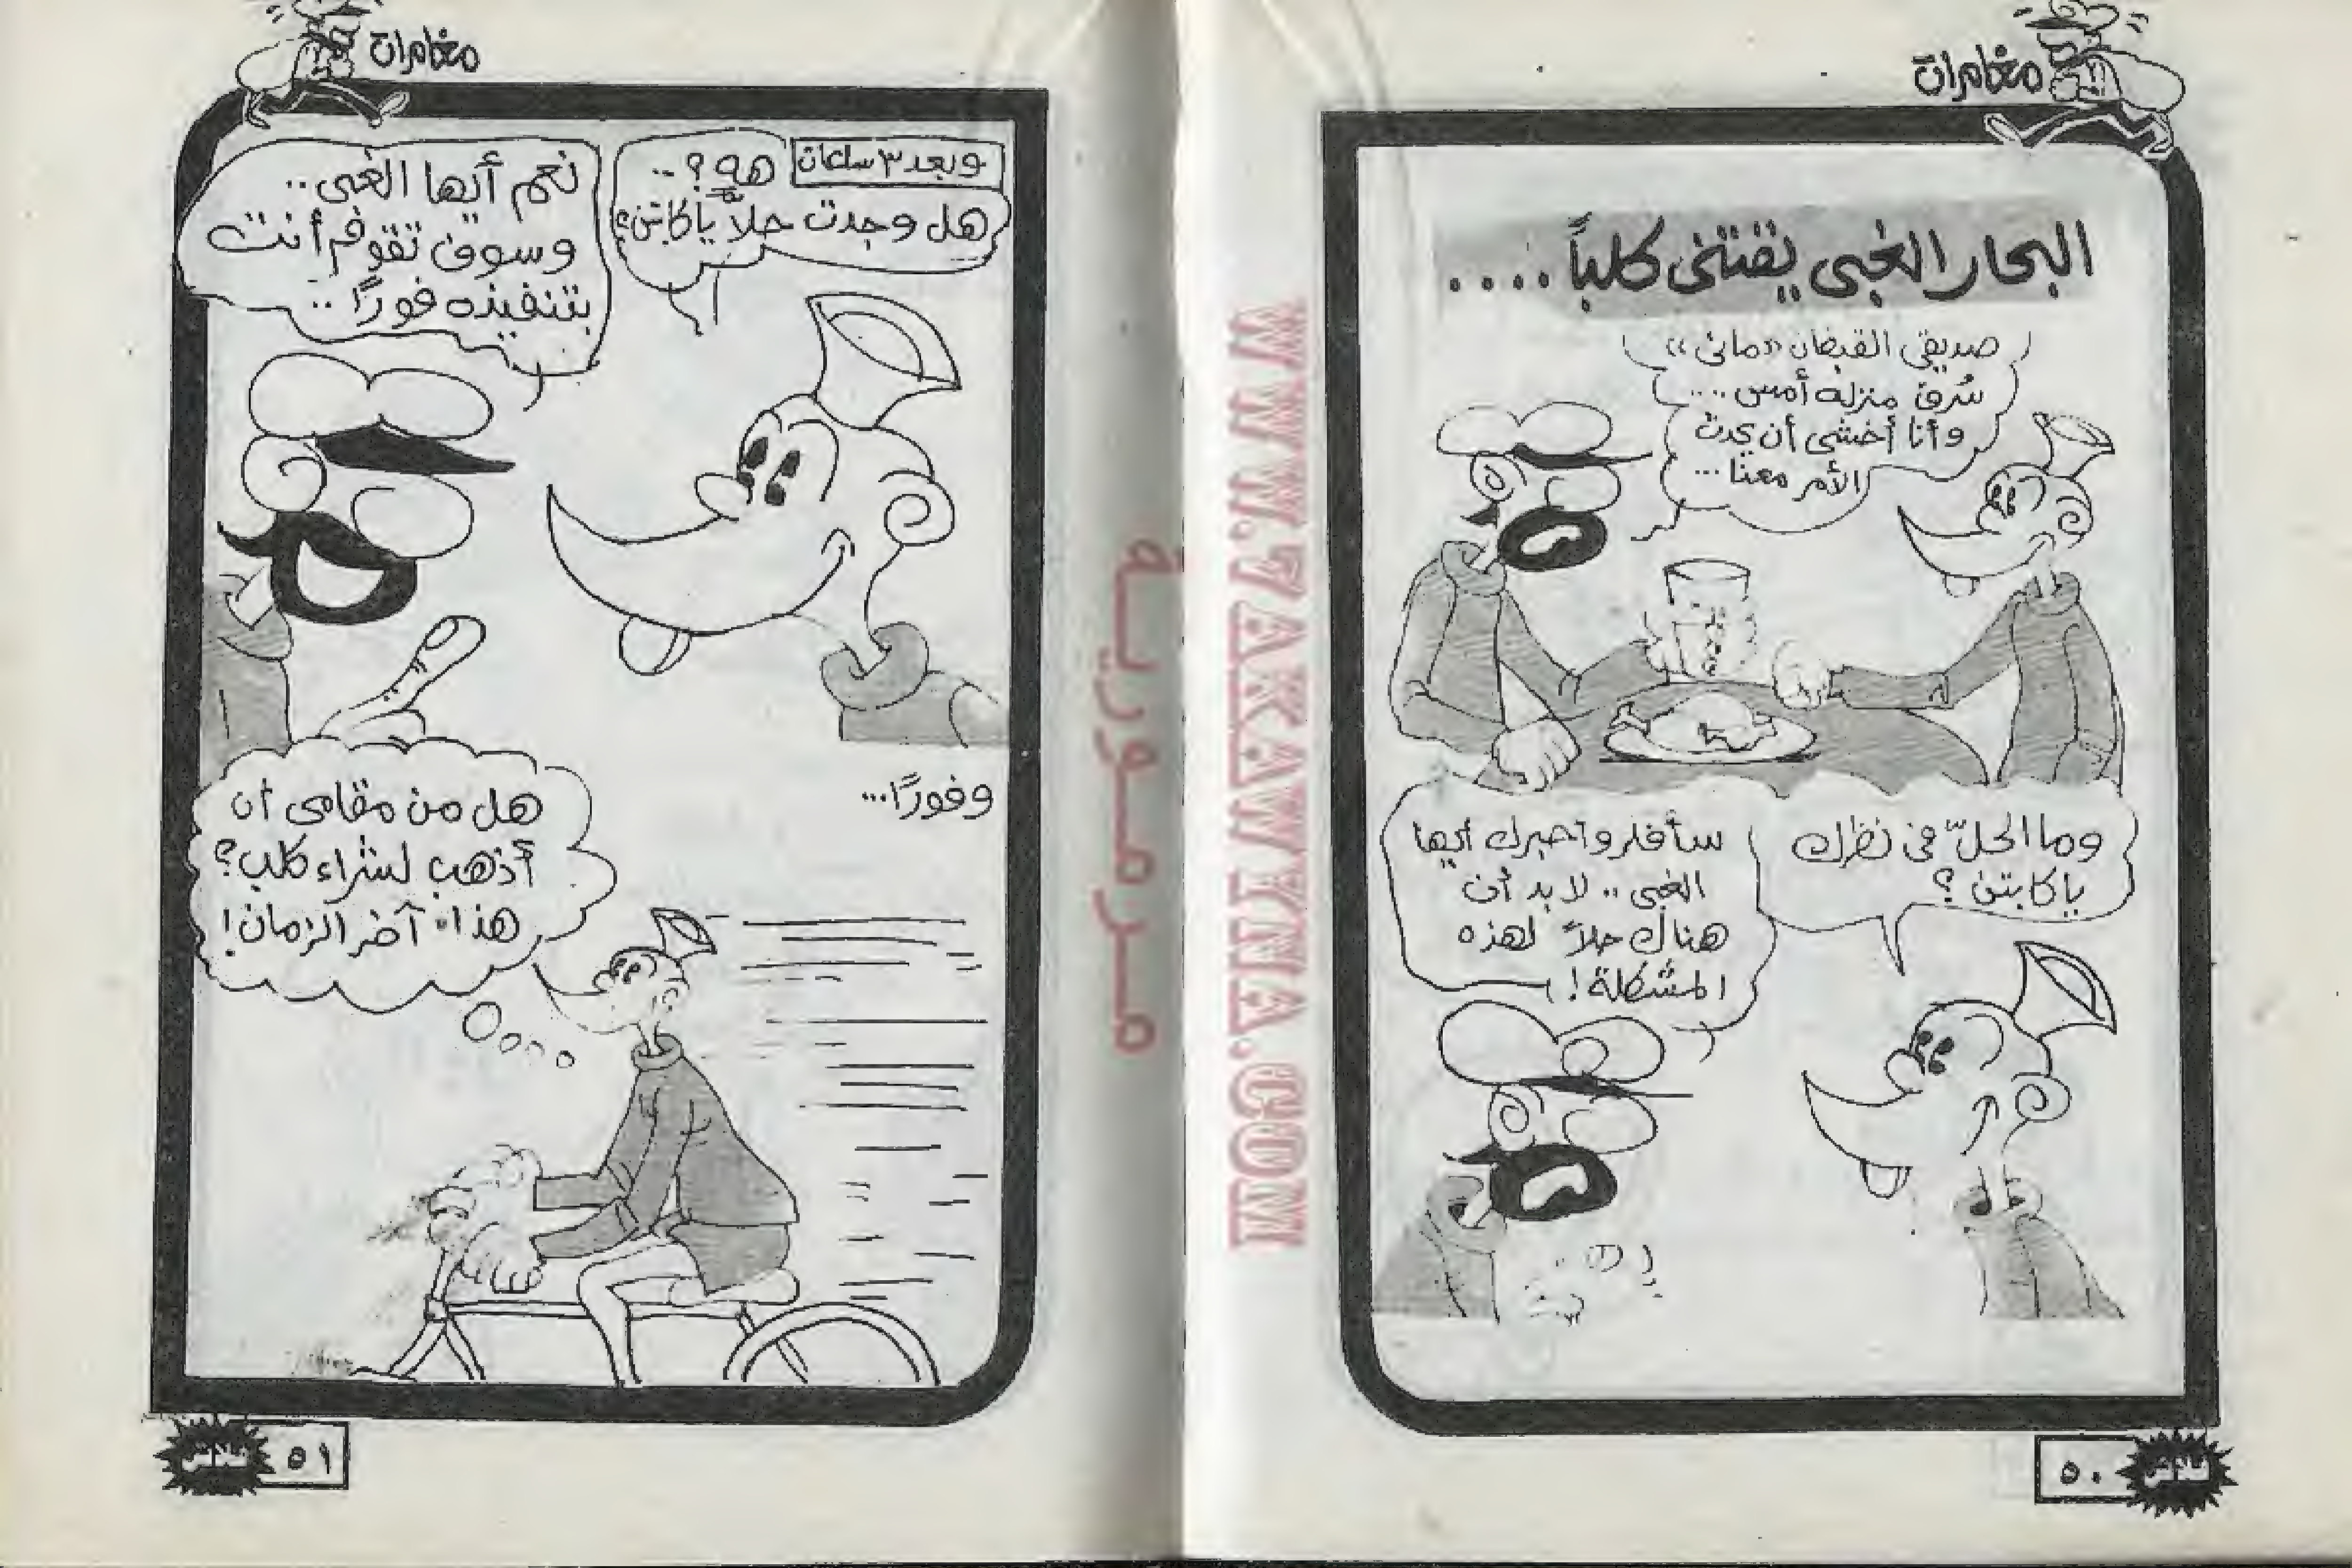 مغامرات
البحار الغبى يقتنى كلباً....
صديقى القبطان «مانى»
سُرق منزله أمس....
وأنا أخشى أن يحدث
الأمر معنا...
وما الحلّ فى نظرك
ياكابتن؟
سأفكر وأخبرك أيها
الغبى.. لا بد أن
هناك حلاً لهذه
المشكلة!
٥٠
فلاش
مغامرات
وبعد ٣ ساعات
هه؟..
هل وجدت حلاً ياكابتن؟
نعم أيها الغبى..
وسوف تقوم أنت
بتنفيذه فورًا..
وفورًا...
هل من مقامى أن
أذهب لشراء كلب؟
هذا آخر الزمان!
٥١
فلاش
WWW.7AKAWYNA.COM
مرمورية